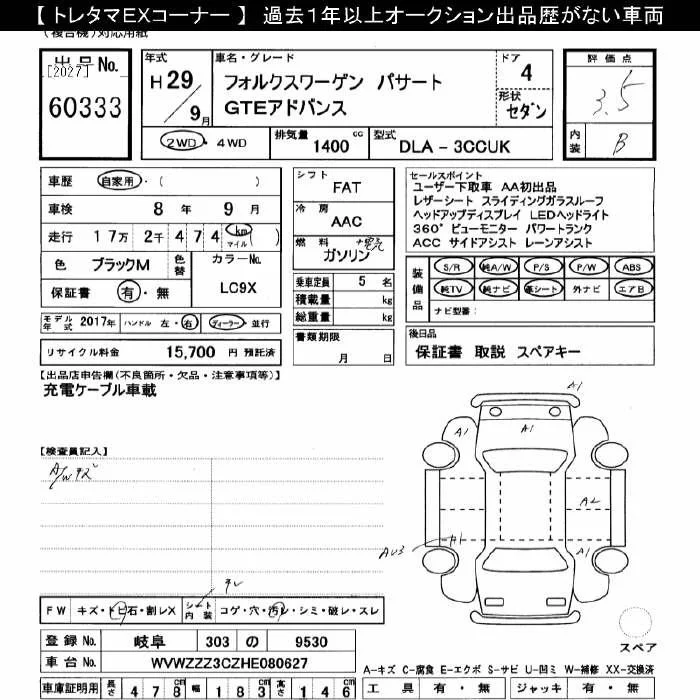 【 トレタマＥＸコーナー 】 過去１年以上オークション出品歴がない車両
(複合機)対応用紙
出品No.
[2027]
60333
年式
H 29
／ 9 月
車名・グレード
フォルクスワーゲン パサート
GTEアドバンス
ドア
4
形状
セダン
評価点
3.5
内装
B
2WD・4WD
排気量 1400 cc
型式 DLA - 3CCUK
車歴 自家用・( )
車検 8 年 9 月
走行 17万 2千 4 7 4 km マイル ( )
色 ブラックM
色替
カラーNo.
LC9X
保証書 有・無
モデル年式 2017年 ハンドル 左・右 ディーラー・並行
リサイクル料金 15,700 円 預託済
シフト
FAT
冷房
AAC
燃料
ガソリン
乗車定員 5 名
積載量 kg
総重量 kg
書類期限
月 日
セールスポイント
ユーザー下取車 AA初出品
レザーシート スライディングガラスルーフ
ヘッドアップディスプレイ LEDヘッドライト
360°ビューモニター パワートランク
ACC サイドアシスト レーンアシスト
装備品
S/R 純A/W P/S P/W ABS
純TV 純ナビ 革シート 外ナビ エアB
ナビ型番：
後日品
保証書 取説 スペアキー
【出品店申告欄(不良箇所・欠品・注意事項等)】
充電ケーブル車載
【検査員記入】
A/W キズ
A1
A1
A1
A1
A2
AU3
A1
A1
スレ
FW キズ・トビ石・割レX
シート内装 コゲ・穴・汚レ・シミ・破レ・スレ
スペア
登録No. 岐阜 303 の 9530
車台No. WVWZZZ3CZHE080627
A-キズ C-腐食 E-エクボ S-サビ U-凹ミ W-補修 XX-交換済
車庫証明用 長さ 4 7 8 cm 幅 1 8 3 cm 高さ 1 4 6 cm
工具 有・無 ジャッキ 有・無